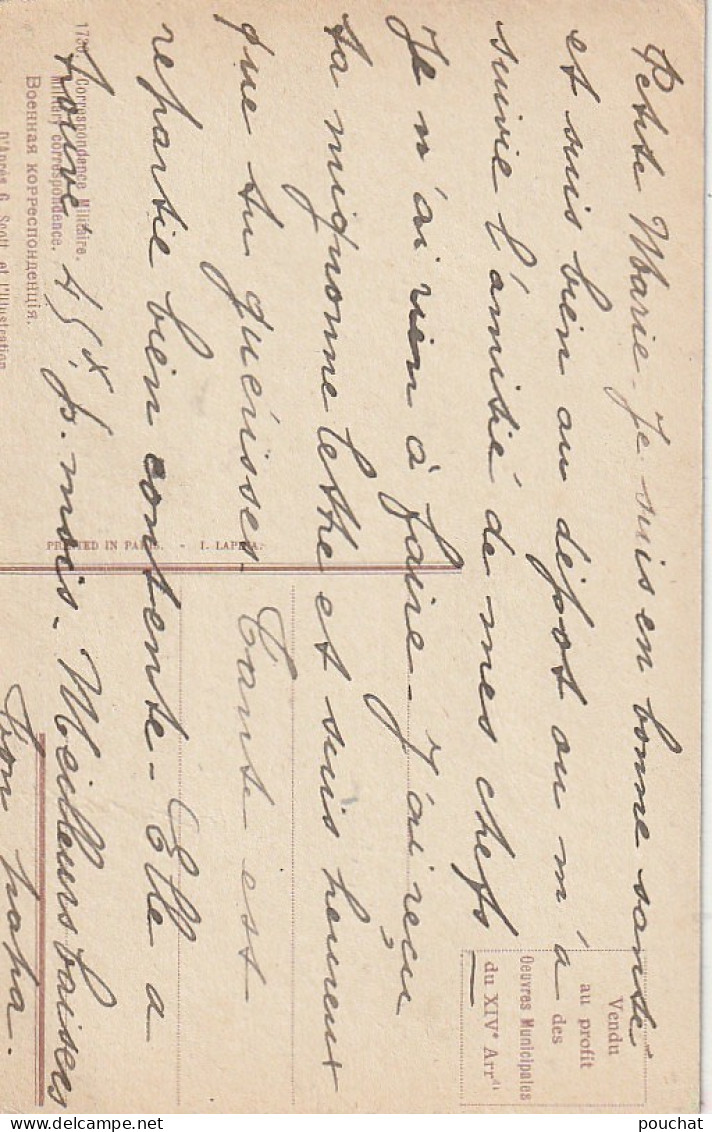 Petite Marie. Je suis en bonne santé
et suis bien au dépot ou m'a
suivie l'amitié de mes chefs
Je n'ai rien à faire - J'ai reçu
ta mignonne lettre et suis heureux
que tu guérisses. Tante est
repartie bien contente - Elle a
45 p. mois - Meilleurs baisers
Ton papa.
Vendu
au profit
des
Oeuvres Municipales
du XIVe Arrdt
Correspondence Militaire.
Military correspondence.
Военная корреспонденція.
D'Après G. Scott et l'Illustration
PRINTED IN PARIS. - I. LAPINA.
pouchat
pouchat